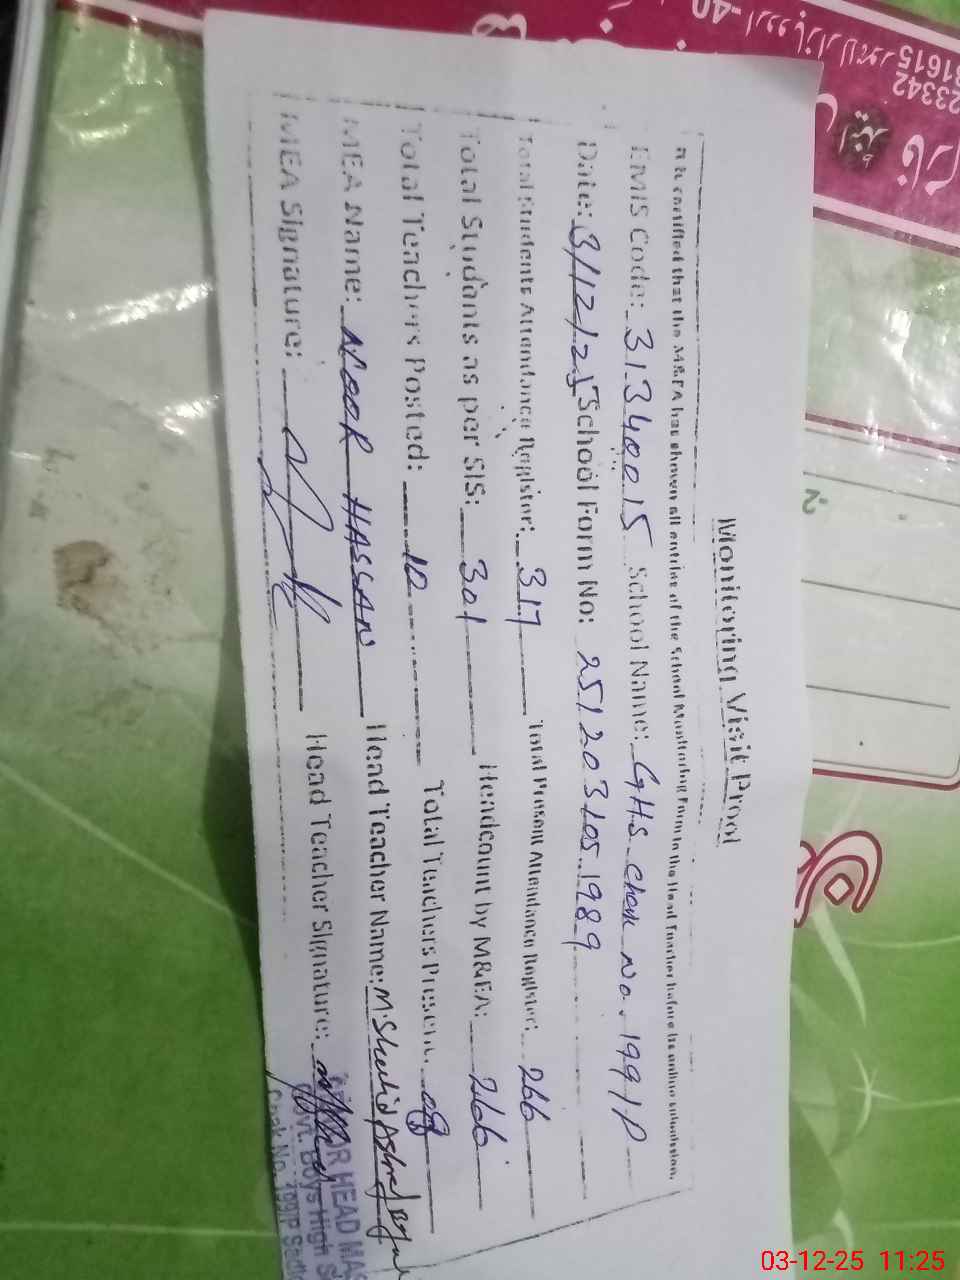 Monitoring Visit Proof
It is certified that the M&EA has shown all entries of the School Monitoring Form to the Head Teacher before its online submission.
EMIS Code: 31340015 School Name: GHS Chak No. 199/P
Date: 3/12/25 School Form No: 2512031051989
Total Students Attendance Register: 317 Total Present Attendance Register: 266
Total Students as per SIS: 301 Headcount by M&EA: 266
Total Teachers Posted: 10 Total Teachers Present: 08
MEA Name: NOOR HASSAN Head Teacher Name: M. Shahid Ashraf
MEA Signature: Head Teacher Signature:
HEAD MAS
Govt. Boys High S
Chak No. 199/P
23342
31615
40-اردو بازار لاہور
-2
03-12-25 11:25